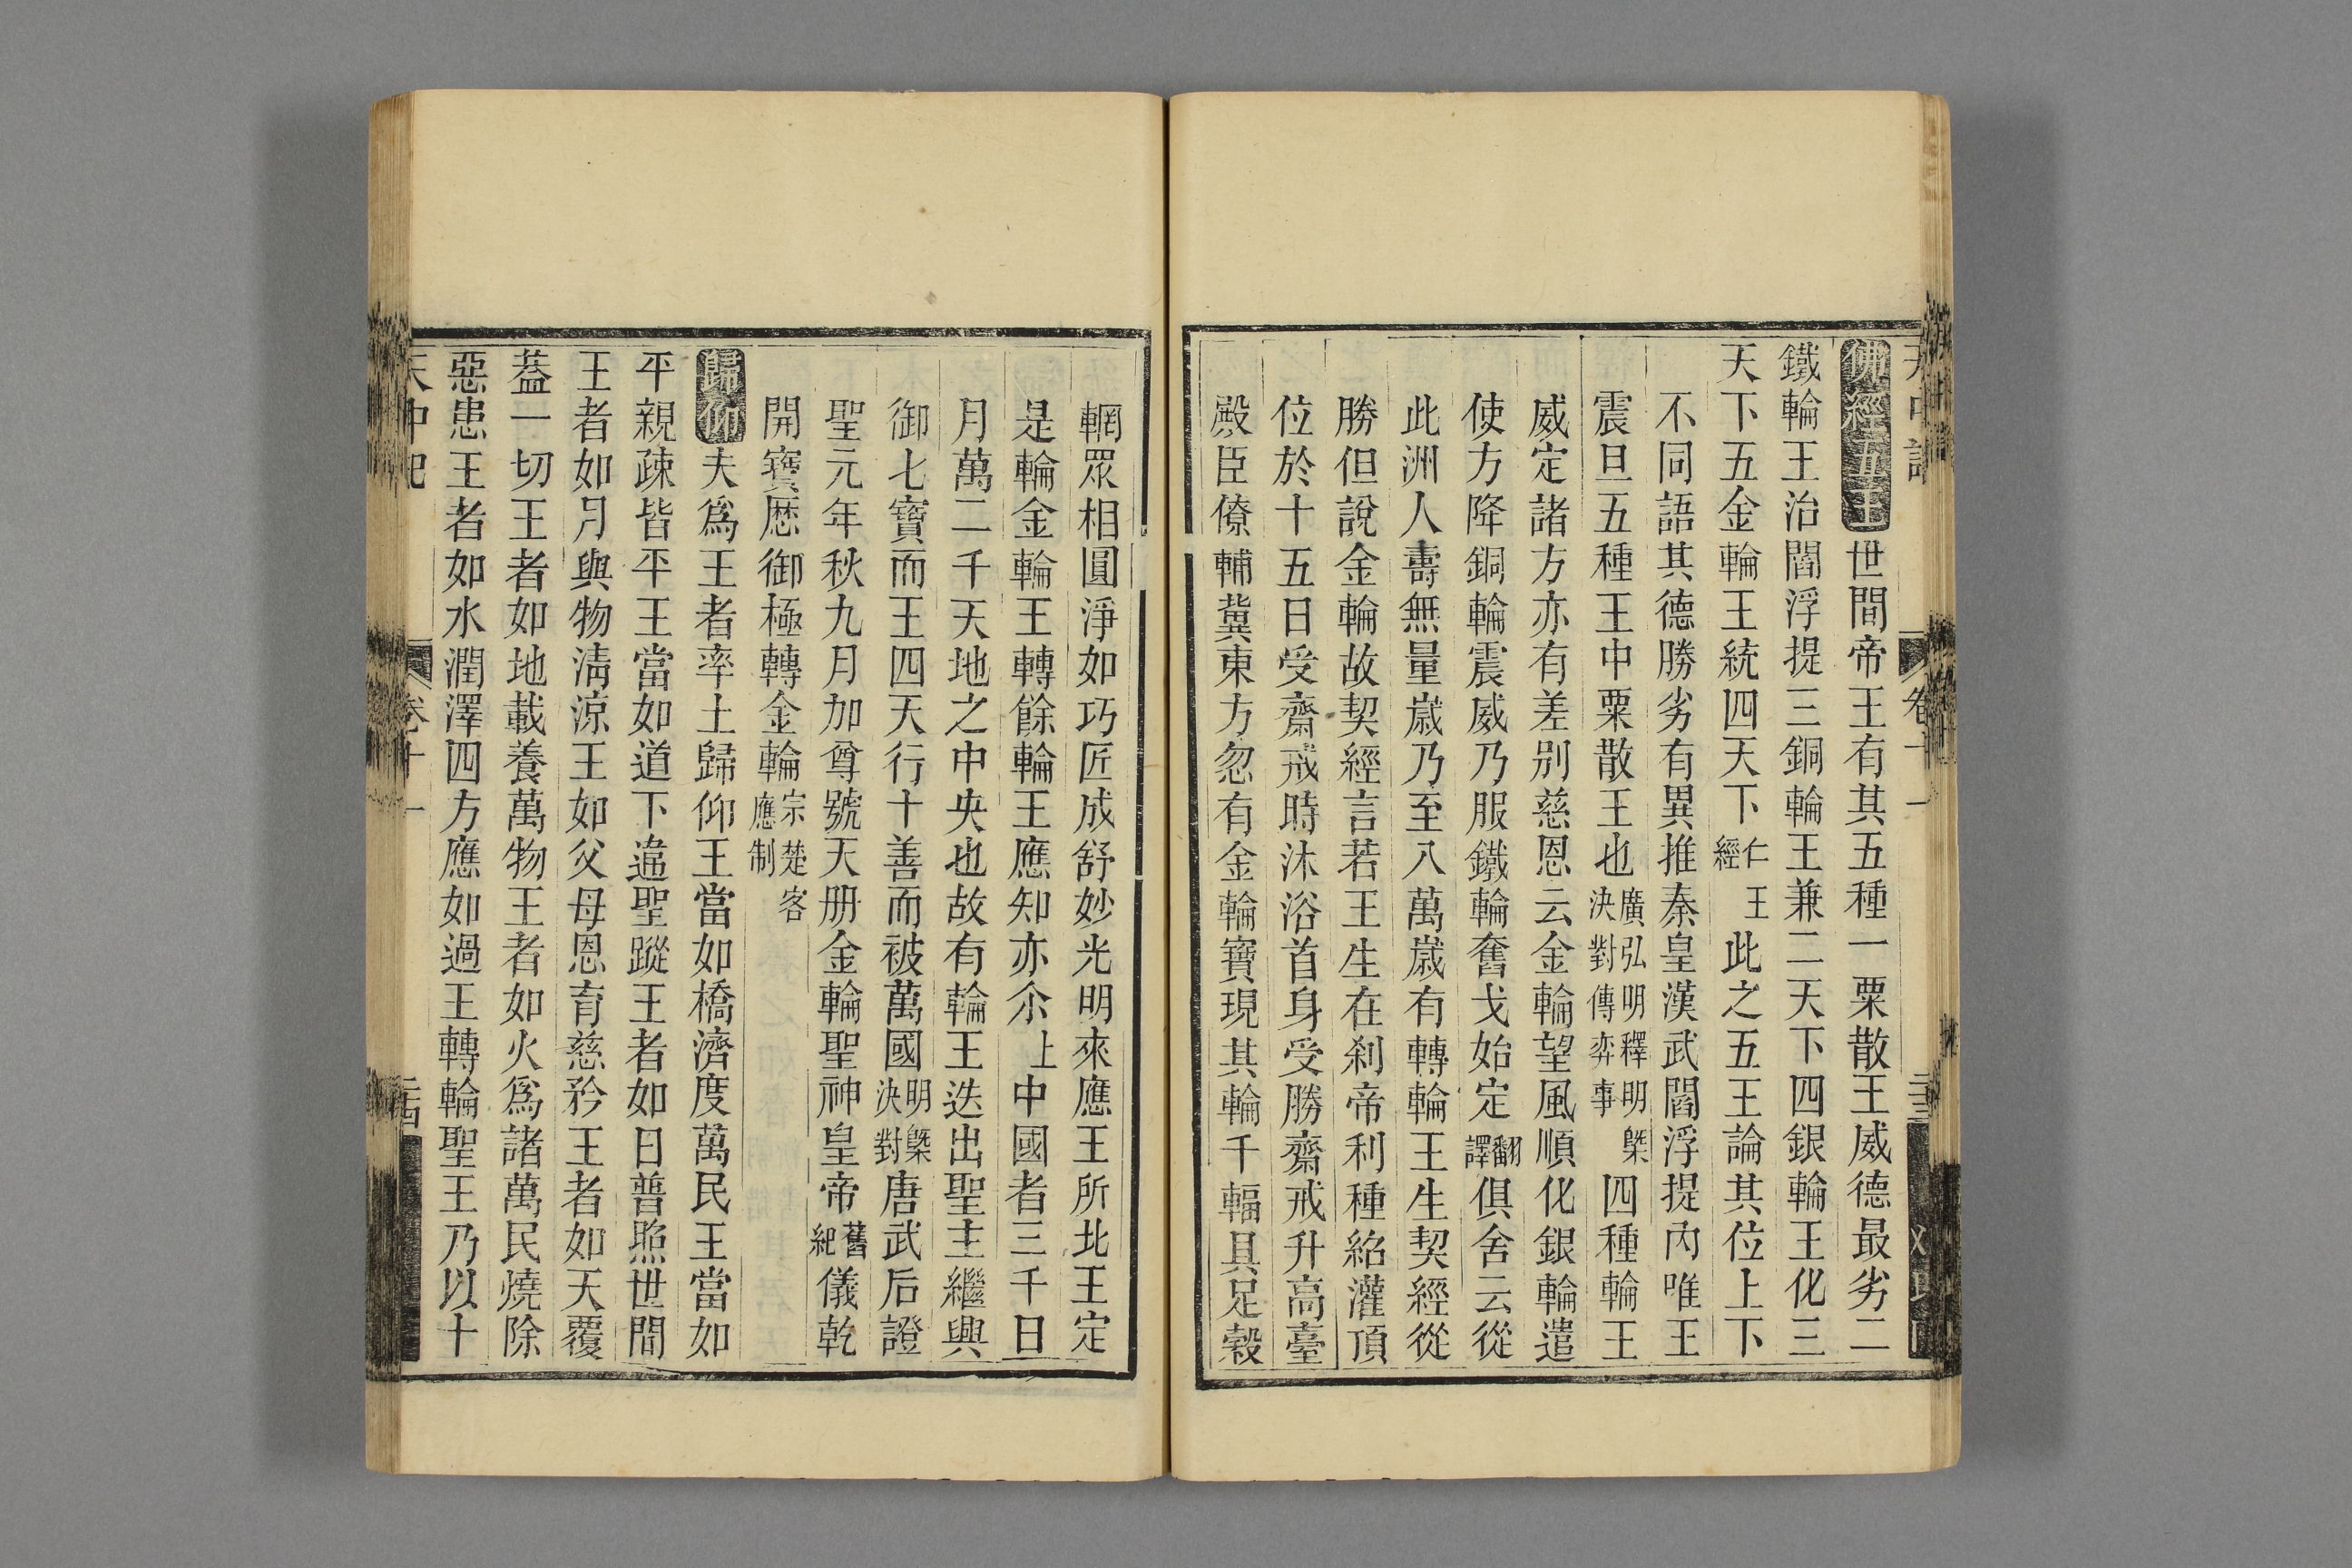 佛經五王世間帝王有其五種一粟散王威德最劣二
鐵輪王治閻浮提三銅輪王兼二天下四銀輪王化三
天下五金輪王統四天下仁王經此之五王論其位上下
不同語其德勝劣有異推秦皇漢武閻浮提內唯王
震旦五種王中粟散王也廣弘明釋明槩決對傅弈事四種輪王
威定諸方亦有差別慈恩云金輪望風順化銀輪遣
使方降銅輪震威乃服鐵輪奮戈始定翻譯俱舍云從
此洲人壽無量歲乃至八萬歲有轉輪王生契經從
勝但說金輪故契經言若王生在刹帝利種紹灌頂
位於十五日受齋戒時沐浴首身受勝齋戒升高臺
殿臣僚輔冀東方忽有金輪寶現其輪千輻具足轂
輞眾相圓淨如巧匠成舒妙光明來應王所北王定
是輪金輪王轉餘輪王應知亦尒上中國者三千日
月萬二千天地之中央也故有輪王迭出聖主繼興
御七寶而王四天行十善而被萬國明槩決對唐武后證
聖元年秋九月加尊號天册金輪聖神皇帝舊紀儀乾
開寶歷御極轉金輪宗楚客應制
歸仰夫爲王者率土歸仰王當如橋濟度萬民王當如
平親疎皆平王當如道下違聖蹤王者如日普照世間
王者如月與物淸涼王如父母恩育慈矜王者如天覆
葢一切王者如地載養萬物王者如火爲諸萬民燒除
惡患王者如水潤澤四方應如過王轉輪聖王乃以十
天中記
卷十一